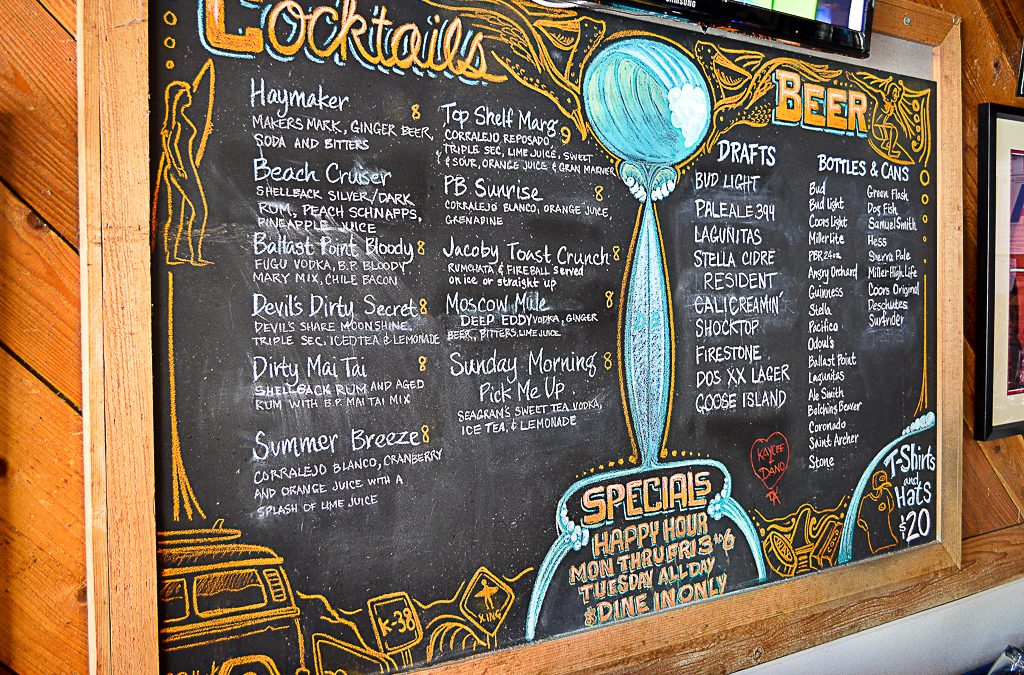 SAMSUNG
Cocktails
Haymaker 8
MAKERS MARK, GINGER BEER,
SODA AND BITTERS
Beach Cruiser
SHELLBACK SILVER/DARK
RUM, PEACH SCHNAPPS,
PINEAPPLE JUICE
Ballast Point Bloody 8
FUGU VODKA, B.P. BLOODY
MARY MIX, CHILE BACON
Devil's Dirty Secret 8
DEVIL'S SHARE MOONSHINE,
TRIPLE SEC, ICED TEA & LEMONADE
Dirty Mai Tai 8
SHELLBACK RUM AND AGED
RUM WITH B.P. MAI TAI MIX
Summer Breeze 8
CORRALEJO BLANCO, CRANBERRY
AND ORANGE JUICE WITH A
SPLASH OF LIME JUICE
Top Shelf Marg 9
CORRALEJO REPOSADO,
TRIPLE SEC, LIME JUICE, SWEET
& SOUR, ORANGE JUICE & GRAN MARNIER
PB Sunrise 8
CORRALEJO BLANCO, ORANGE JUICE,
GRENADINE
Jacoby Toast Crunch 8
RUMCHATA & FIREBALL served
on ice or straight up
Moscow Mule 8
DEEP EDDY VODKA, GINGER
BEER, BITTERS, LIME JUICE
Sunday Morning 8
Pick Me Up
SEAGRAM'S SWEET TEA VODKA,
ICE TEA, & LEMONADE
BEER
DRAFTS
BUD LIGHT
PALE ALE 394
LAGUNITAS
STELLA CIDRE
RESIDENT
CALI CREAMIN'
SHOCKTOP
FIRESTONE
DOS XX LAGER
GOOSE ISLAND
KAYCEE
DANO
BOTTLES & CANS
Bud
Bud light
Coors Light
Miller Lite
PBR 24oz
Angry Orchard
Guinness
Stella
Pacifico
Odoul's
Ballast Point
Lagunitas
Ale Smith
Belching Beaver
Coronado
Saint Archer
Stone
Green Flash
Dog Fish
Samuel Smith
Hess
Sierra Pale
Miller High Life
Coors Original
Deschutes
Surfrider
SPECIALS
HAPPY HOUR
MON THRU FRI 3 to 6
TUESDAY ALL DAY
& DINE IN ONLY
T-Shirts
and
Hats
$20
K-38
XING